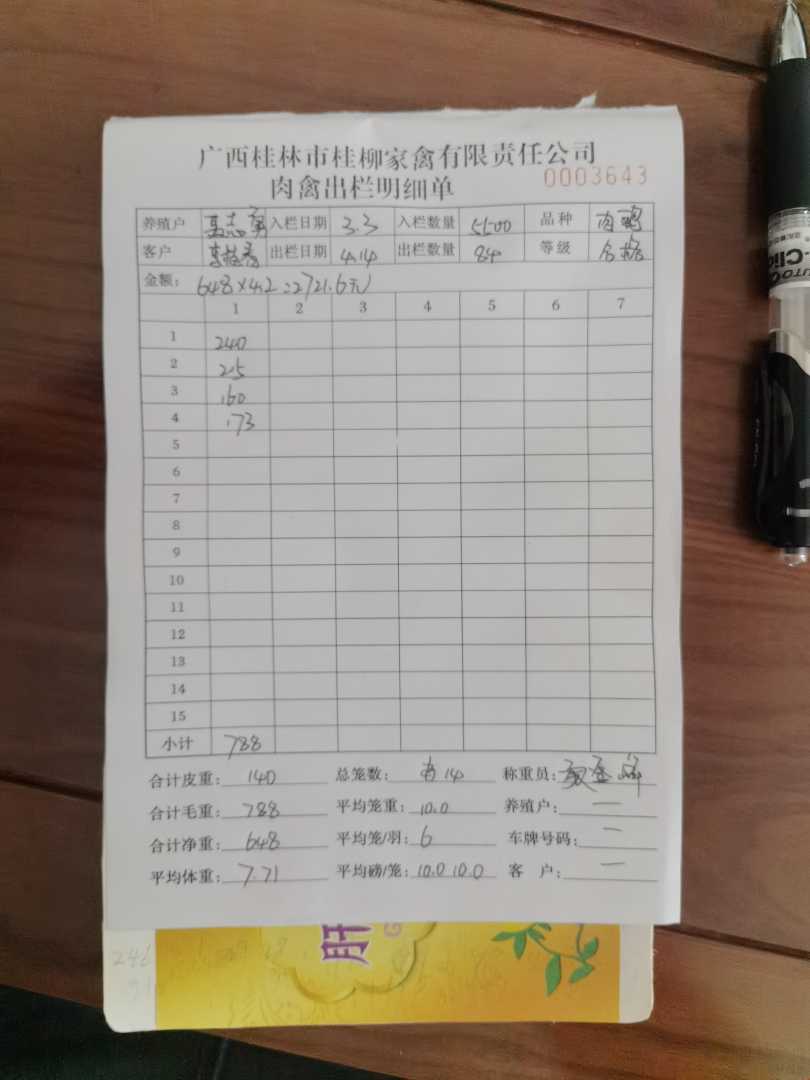 广西桂林市桂柳家禽有限责任公司
肉禽出栏明细单 0003643
养殖户 志勇 入栏日期 3.3 入栏数量 5500 品种 肉鸭
客户 出栏日期 4.14 出栏数量 84 等级 合格
金额: 648×4.2=2721.6元
1 2 3 4 5 6 7
1 240
2 215
3 160
4 173
5
6
7
8
9
10
11
12
13
14
15
小计 788
合计皮重: 140 总笼数: 14 称重员:
合计毛重: 788 平均笼重: 10.0 养殖户: 一
合计净重: 648 平均笼/羽: 6 车牌号码: 一
平均体重: 7.71 平均磅/笼: 10.0 10.0 客 户: 一
肝
G
246